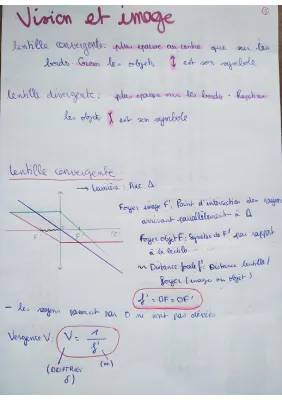 Vision et image
lentille convergente : plus épaisse au centre que sur les
bords. les objets est son symbole
lentille divergente : plus épaisse sur les bords.
les objets est son symbole
lentille convergente
→ Lumière : Axe Δ
Foyer image F'. Point d'intersection des rayons
arrivant parallèlement à Δ
Foyer objet F : Symétrie de F' par rapport
à la lentille
Distance focale f' : Distance lentille/
foyer (image ou objet)
f' = OF = OF'
- les rayons passant par O ne sont pas déviés
Vergence V : V = 1/f'
(m)
(DIOPTRIES
δ)